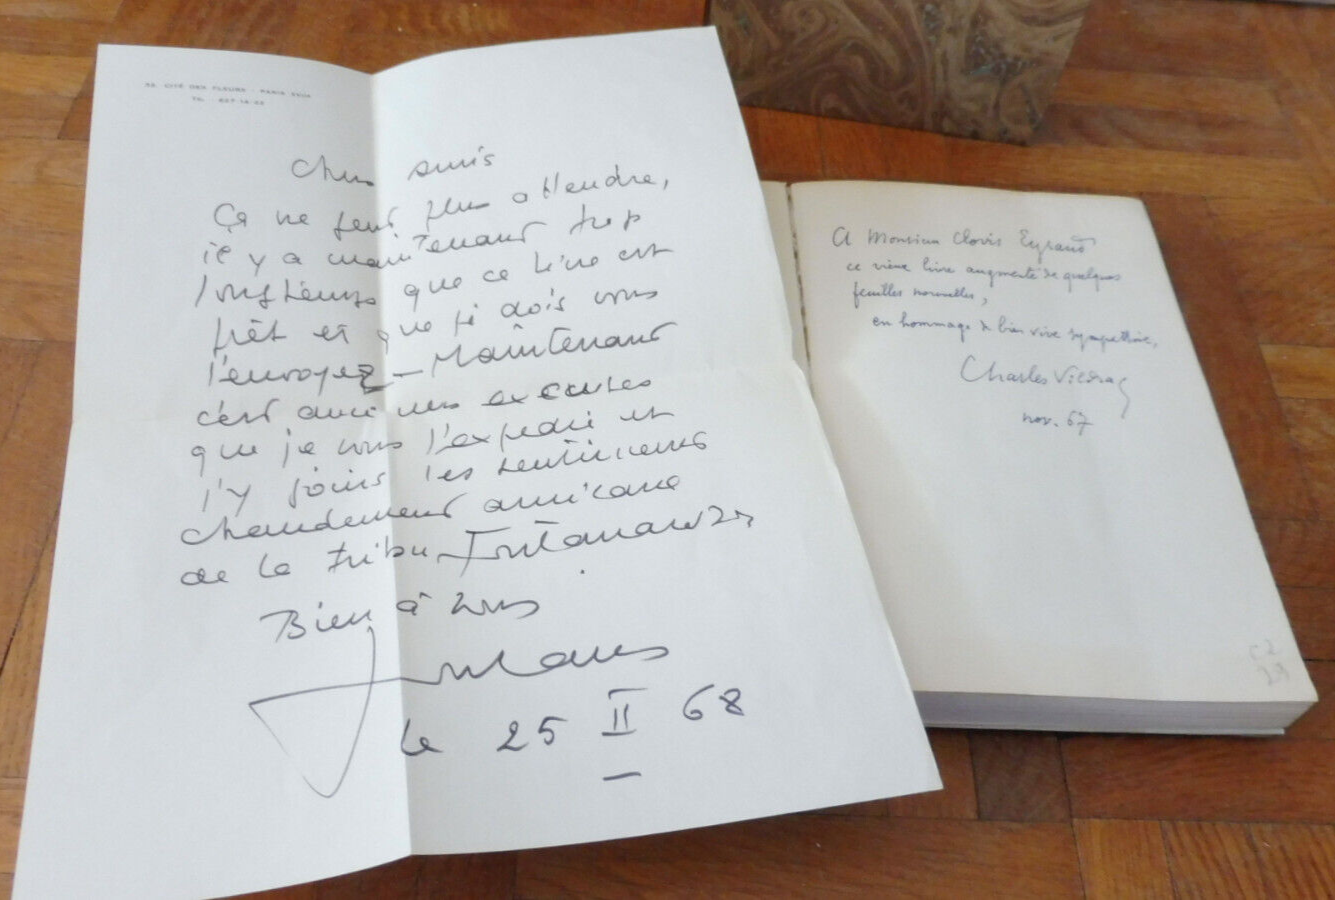 CITÉ DES FLEURS - PARIS XVII
Tél. : 627-14-23
Chers amis
Ça ne peut plus attendre,
il y a maintenant trop
longtemps que ce livre est
prêt et que je dois vous
l'envoyez - Maintenant
c'est avec mes excuses
que je vous l'expédie et
j'y joins les sentiments
chaudement amicaux
de la tribu Fontanarosa.
Bien à vous
le 25 II 68
A Monsieur Clovis Eyraud
ce vieux livre augmenté de quelques
feuilles nouvelles,
en hommage de bien vive sympathie,
Charles Vildrac
nov. 67